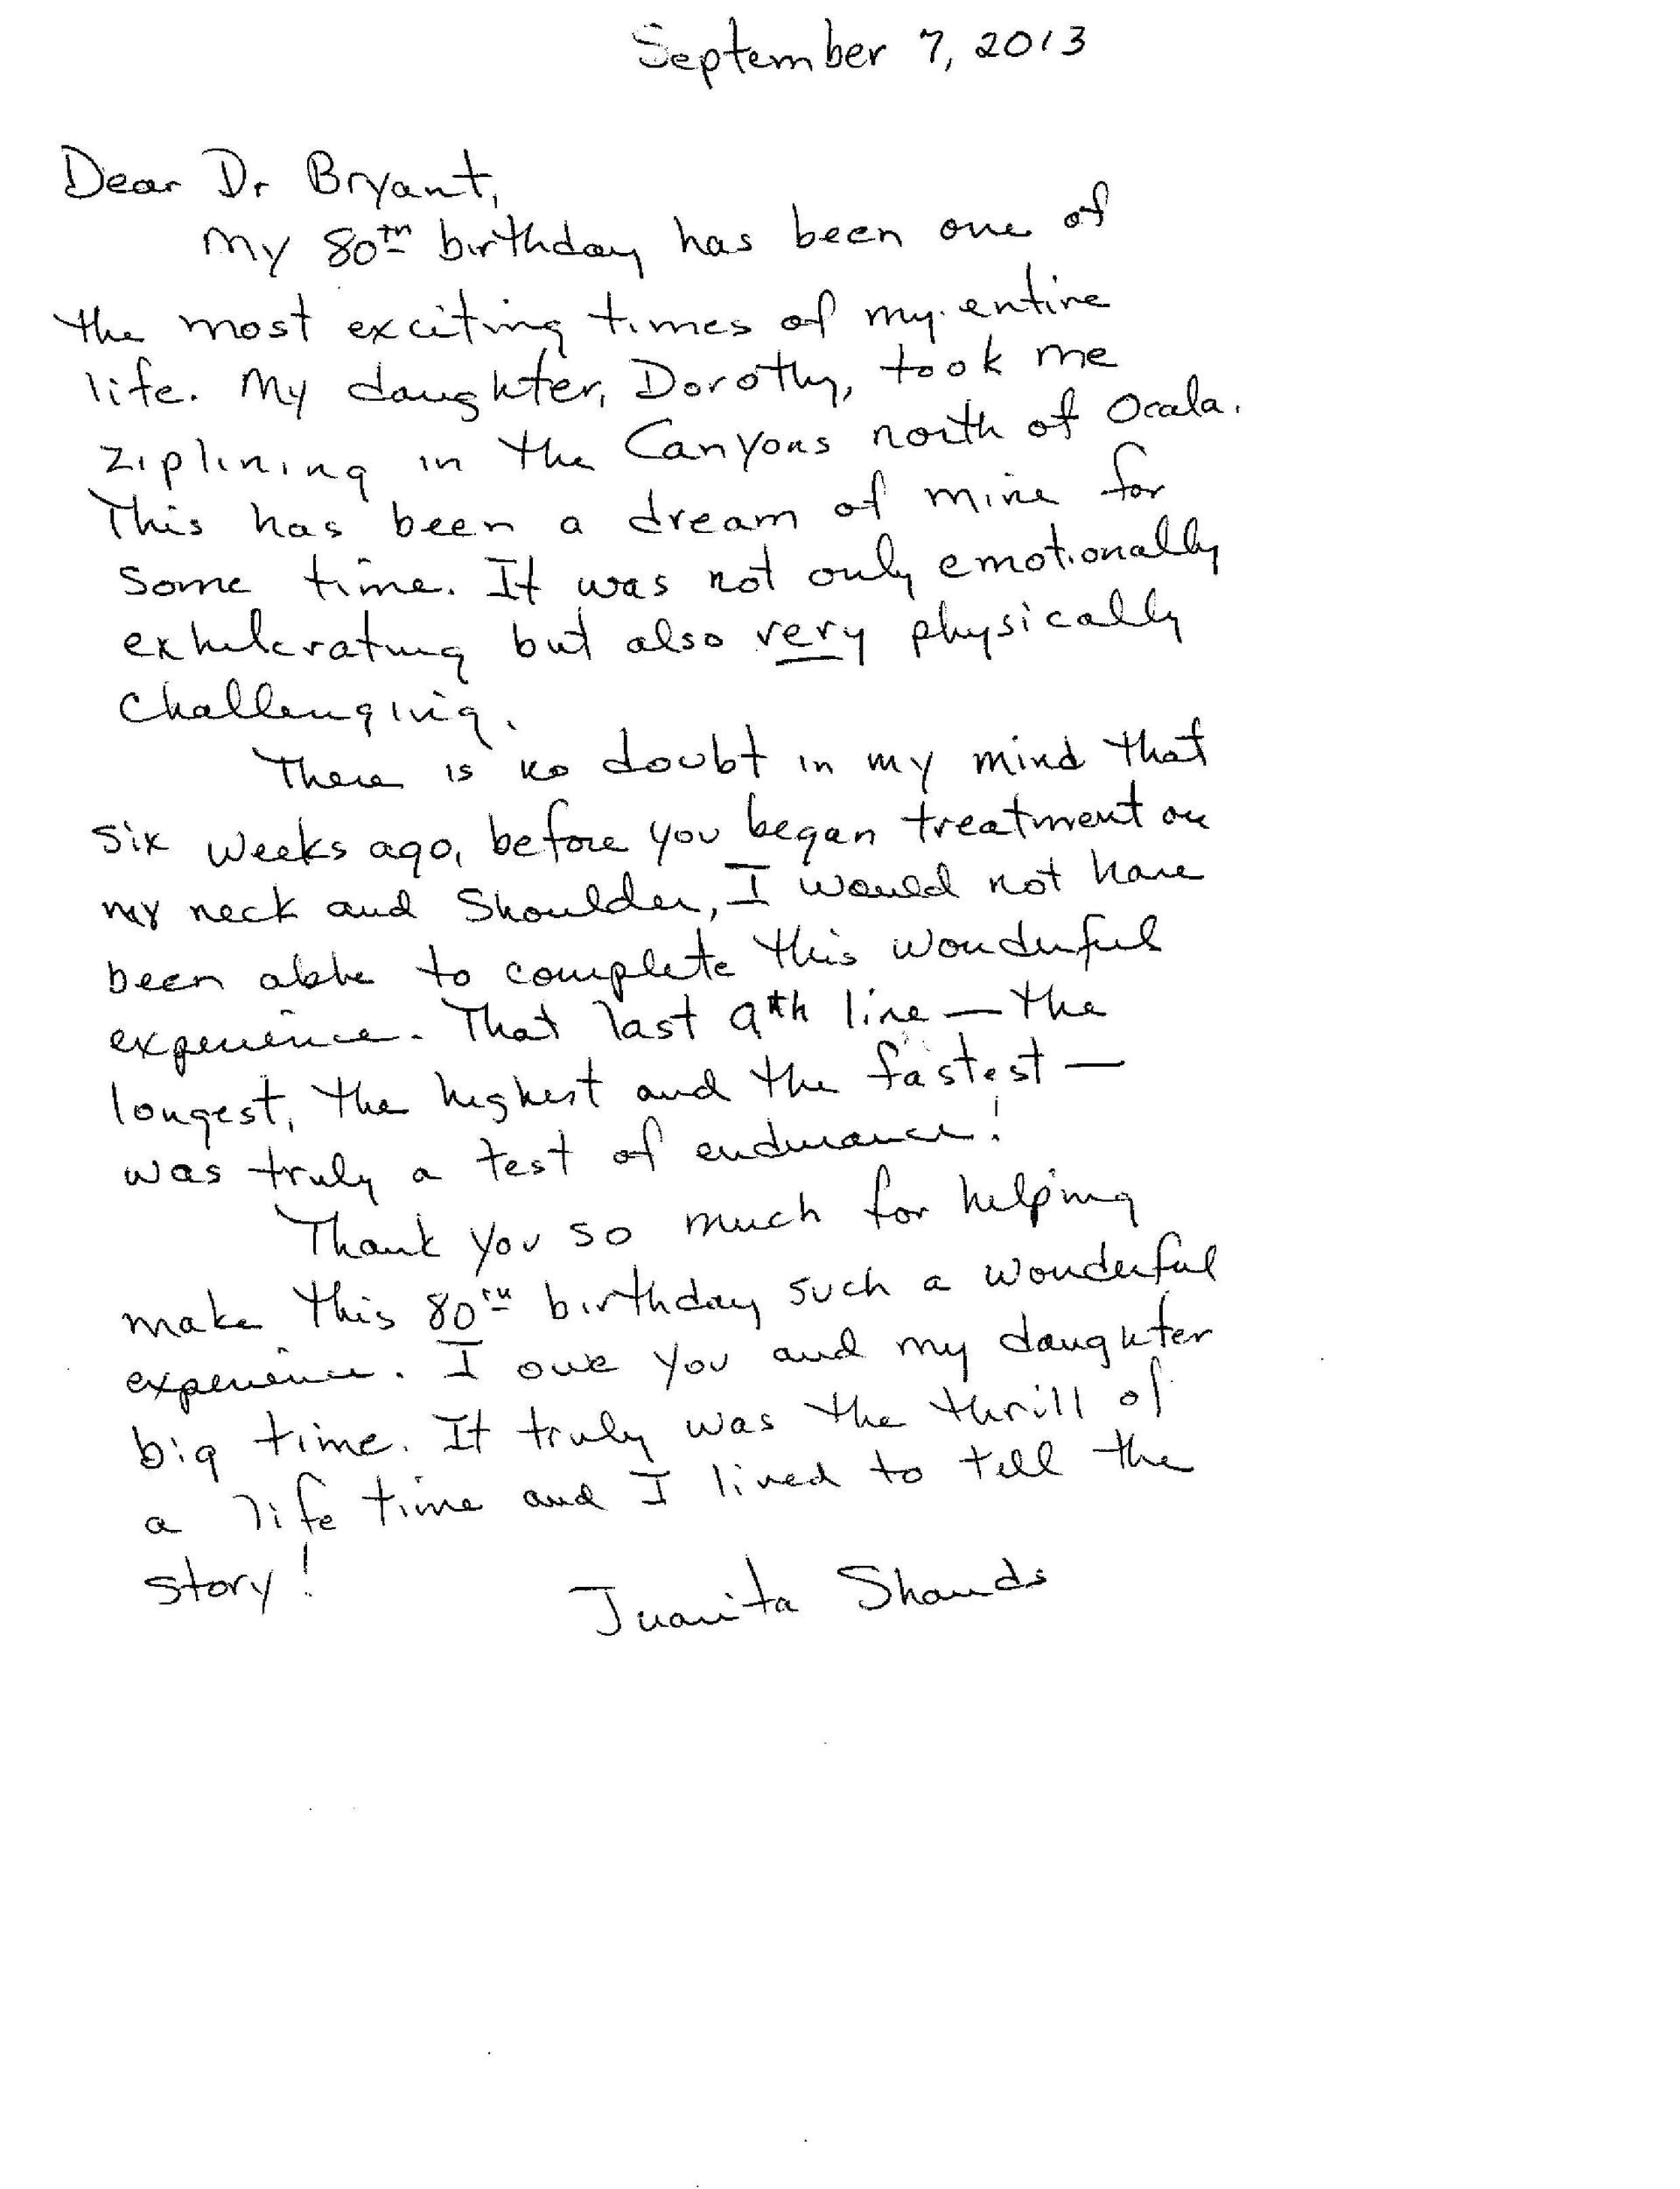 September 7, 2013
Dear Dr Bryant,
My 80th birthday has been one of
the most exciting times of my entire
life. My daughter, Dorothy, took me
ziplining in the Canyons north of Ocala.
This has been a dream of mine for
some time. It was not only emotionally
exhilerating but also very physically
challenging.
There is no doubt in my mind that
six weeks ago, before you began treatment on
my neck and shoulder, I would not have
been able to complete this wonderful
experience. That last 9th line — the
longest, the highest and the fastest —
was truly a test of endurance!
Thank you so much for helping
make this 80th birthday such a wonderful
experience. I owe you and my daughter
big time. It truly was the thrill of
a life time and I lived to tell the
story!
Juanita Shands